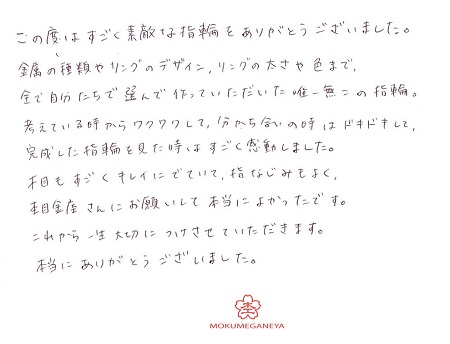 この度はすごく素敵な指輪をありがとうございました。
金属の種類やリングのデザイン,リングの太さや色まで、
全て自分たちで選んで作っていただいた唯一無二の指輪。
考えている時からワクワクして,分かち合いの時はドキドキして,
完成した指輪を見た時はすごく感動しました。
木目もすごくキレイにでていて,指なじみもよく,
杢目金屋さんにお願いして本当によかったです。
これから一生大切につけさせていただきます。
本当にありがとうございました。
杢
MOKUMEGANEYA